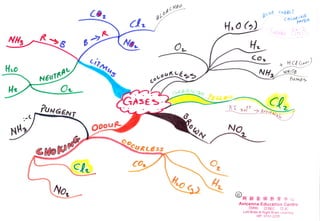 GASES
LITMUS
B → R
CO2
Cl2
NO2
BLEACHED
R → B
NH3
NEUTRAL
H2O
H2
O2
COLOURLESS
O2
H2O (g)
H2
CO2
NH3
+ HCl (conc)
WHITE
FUMES
BLUE COBALT
CHLORIDE
PAPER
Cl2
BROWN
NO2
ODOUR
PUNGENT
NH3
CHOKING
Cl2
NO2
ODOURLESS
CO2
H2O (g)
O2
H2
Avicenna Education Centre